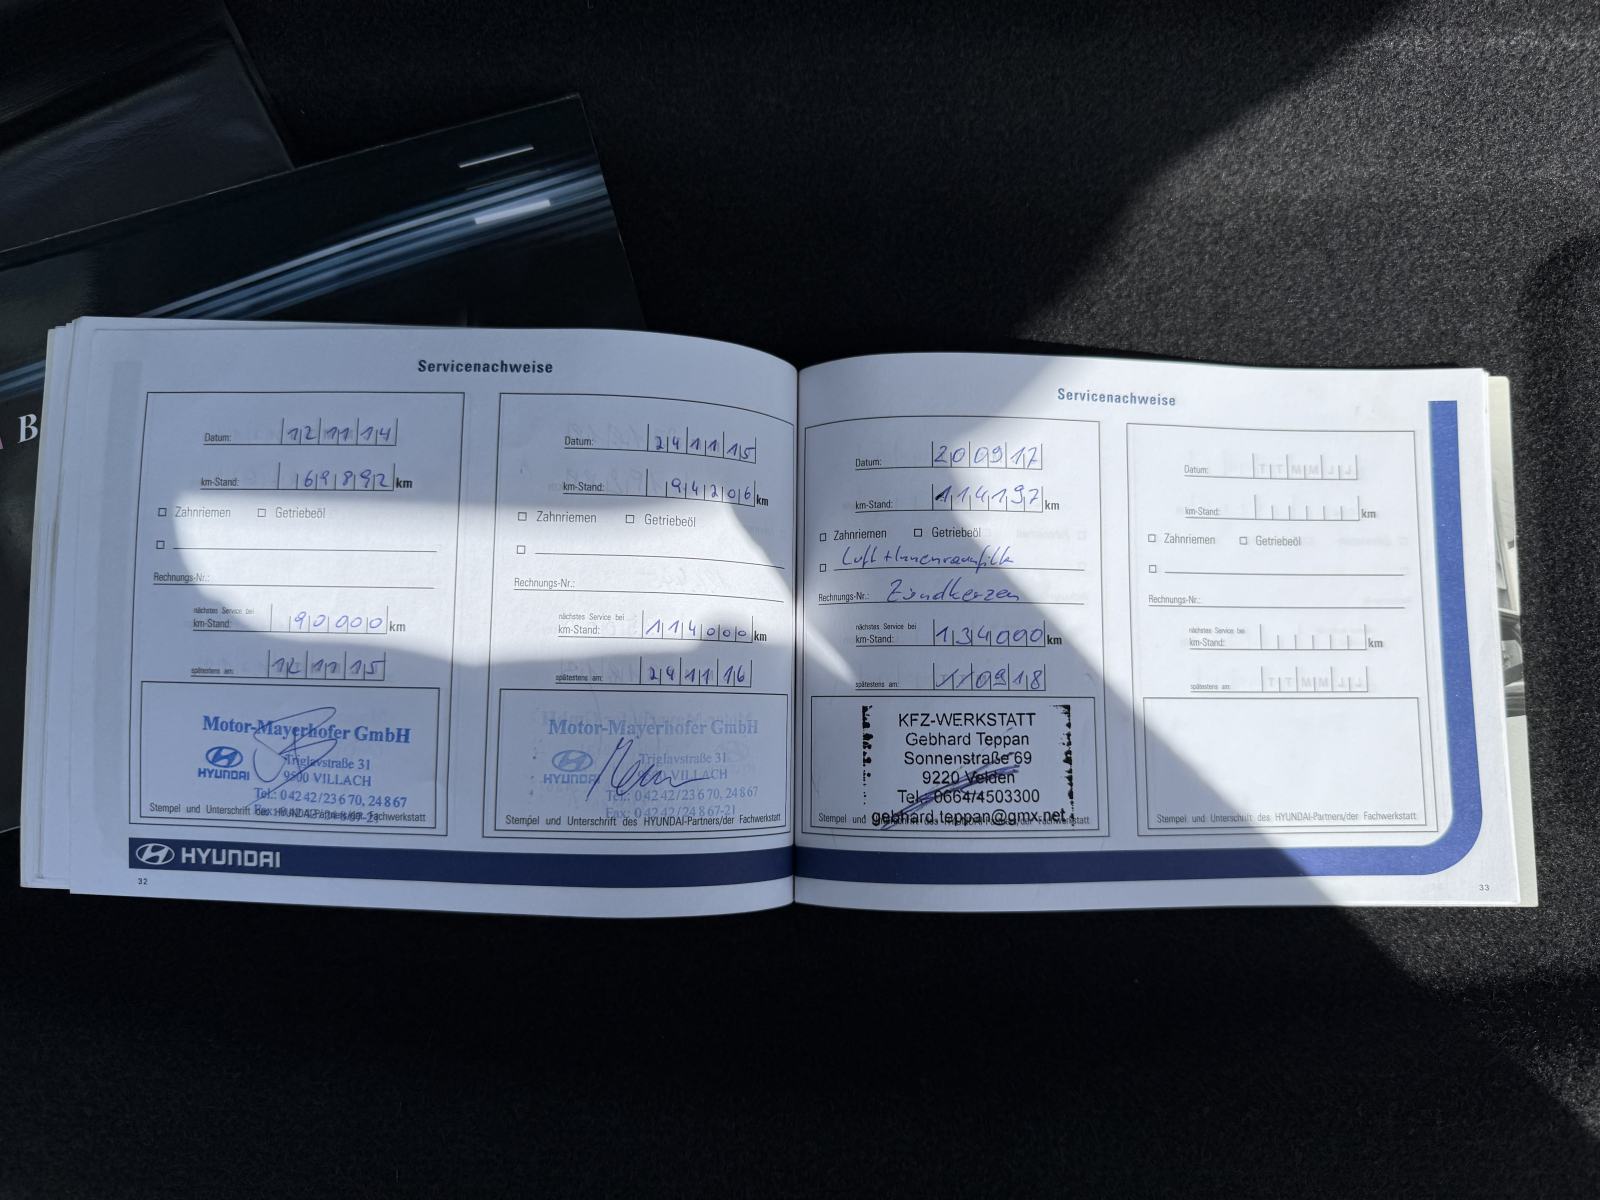 B
Servicenachweise
Datum: 12 11 14
km-Stand: 69892 km
Zahnriemen Getriebeöl
Rechnungs-Nr.:
nächstes Service bei
km-Stand: 90000 km
spätestens am: 12 11 15
Motor-Mayerhofer GmbH
HYUNDAI
Triglavstraße 31
9500 VILLACH
Tel.: 0 42 42 / 23 6 70, 24 8 67
Stempel und Unterschrift des HYUNDAI-Partners/der Fachwerkstatt
Datum: 24 11 15
km-Stand: 94206 km
Zahnriemen Getriebeöl
Rechnungs-Nr.:
nächstes Service bei
km-Stand: 114000 km
spätestens am: 24 11 16
Motor-Mayerhofer GmbH
HYUNDAI
Triglavstraße 31
VILLACH
Tel.: 0 42 42 / 23 6 70, 24 8 67
Fax: 0 42 42 / 24 8 67-21
Stempel und Unterschrift des HYUNDAI-Partners/der Fachwerkstatt
HYUNDAI
32
Servicenachweise
Datum: 20 09 17
km-Stand: 114197 km
Zahnriemen Getriebeöl
Luft + Innenraumfilter
Rechnungs-Nr.: Zündkerzen
nächstes Service bei
km-Stand: 134000 km
spätestens am: 09 18
KFZ-WERKSTATT
Gebhard Teppan
Sonnenstraße 69
9220 Velden
Tel. 0664/4503300
gebhard.teppan@gmx.net
Stempel und Unterschrift des HYUNDAI-Partners/der Fachwerkstatt
Datum: T T M M J J
km-Stand: km
Zahnriemen Getriebeöl
Rechnungs-Nr.:
nächstes Service bei
km-Stand: km
spätestens am: T T M M J J
Stempel und Unterschrift des HYUNDAI-Partners/der Fachwerkstatt
33